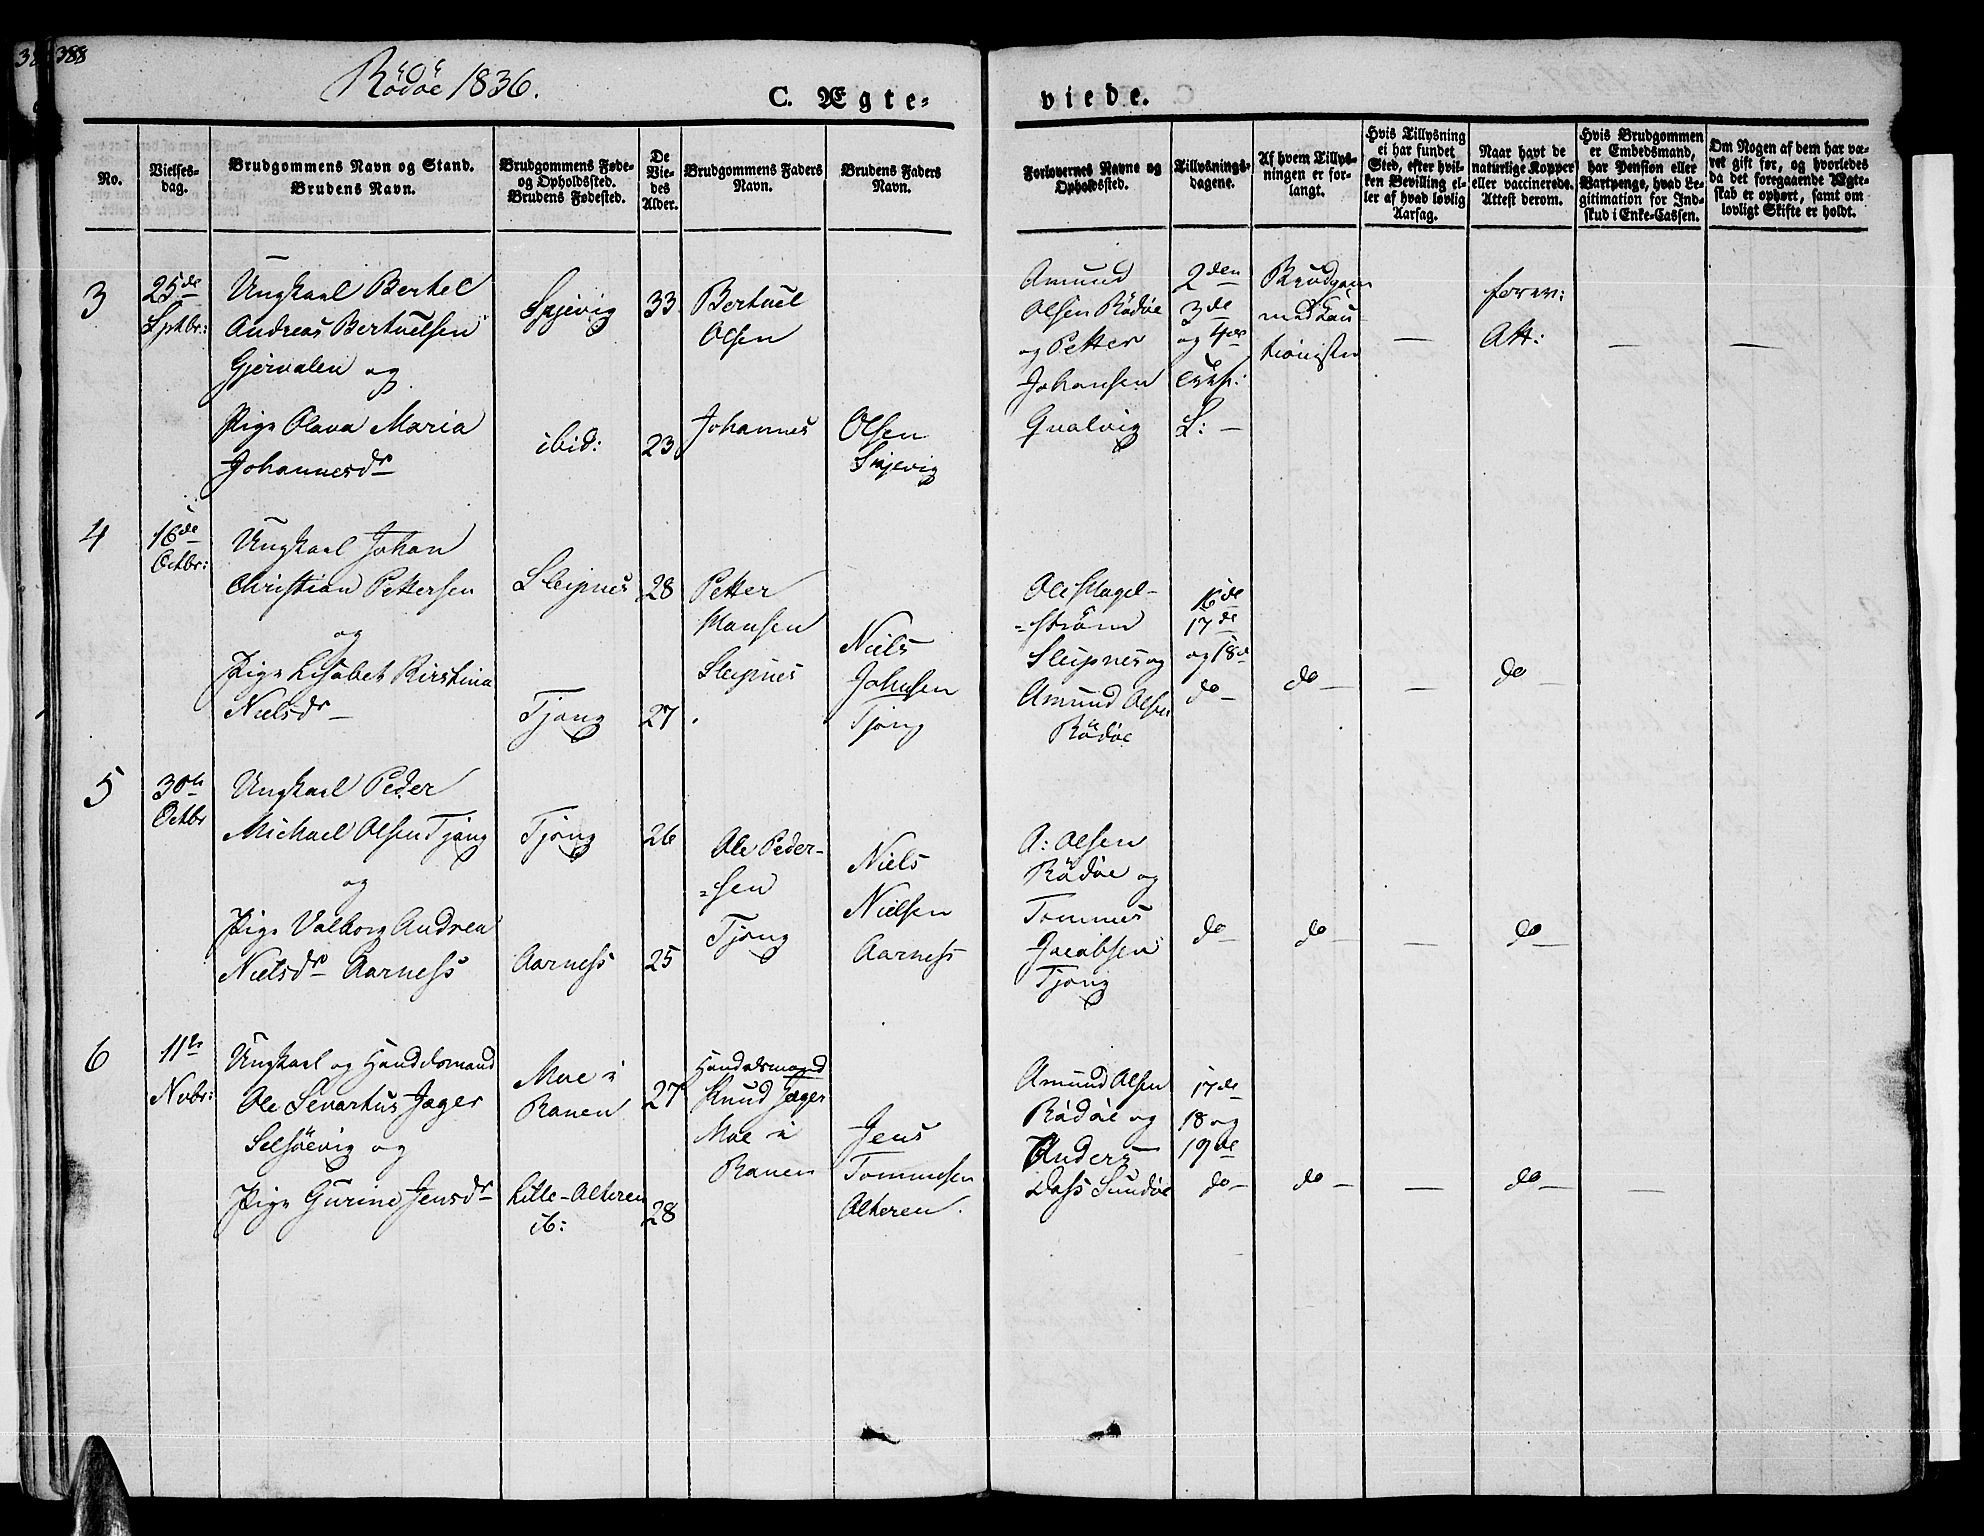 388
Rödöe 1836.
C. Ægte=
viede.
No.
Vielses-
dag.
Brudgommens Navn og Stand.
Brudens Navn.
Brudgommens Føde-
og Opholdssted.
Brudens Fødested.
De
Vie-
des
Alder.
Brudgommens Faders
Navn.
Brudens Faders
Navn.
Forlovernes Navne og
Opholdssted.
Tillysnings-
dagene.
Af hvem Tillys-
ningen er for-
langt.
Hvis Tillysning
ei har fundet
Sted, efter hvil-
ken Bevilling el-
ler af hvad lovlig
Aarsag.
Naar havt de
naturlige Kopper
eller vaccinerede.
Attest derom.
Hvis Brudgommen
er Embedsmand,
har Pension eller
Vartpenge, hvad Le-
gitimation for Ind-
skud i Enke-Cassen.
Om Nogen af dem har væ-
ret gift før, og hvorledes
da det foregaaende Ægte-
skab er ophørt, samt om
lovligt Skifte er holdt.
3
25de
Sptbr:
Ungkarl Bertel
Andreas Bertuelsen
Gjervalen og
Pige Olava Maria
Johannesdr
ibid:
33
23
Bertuel
Olsen
Johannes
Olsen
Amund
Olsen Rödöe
og Petter
Johansen
Qvalvig
2den
3de
og 4de
S: –
Brudgom
med Cau-
tionister
—
forev:
Att:
—
—
4
16de
Octbr:
Ungkarl Johan
Christian Pettersen
og
Pige Lisabet Kirstina
Nielsdr
Sleipnes
Tjong
28
27
Petter
Hansen
Sleipnes
Niels
Johnsen
Tjong
Ole Hagel-
=ström
Sleipnes og
Amund Olsen
Rödöe
16de
17de
og 18de
do –
do –
—
do –
5
30te
Octbr
Ungkarl Peder
Michael Olsen Tjong
og
Pige Valborg Andrea
Nielsdr Aarness
Tjong
Aarness
26
25
Ole Peder-
=sen
Tjong
Niels
Nielsen
Aarness
A: Olsen
Rödöe og
Tommes
Jacobsen
Tjong
do –
do –
—
do –
6
11te
Novbr:
Ungkarl og Handelsmand
Ole Sevartus Jæger
Selsöevig og
Pige Gurine Jensdr
Moe i
Ranen
Lille-Alteren
ib:
27
28
Handelsmand
Knud Jæger
Moe i
Ranen
Jens
Tommesen
Alteren.
Amund Olsen
Rödöe og
Anders
Dass Sundöe
17de
18 og
19de
do –
do –
—
do –
—